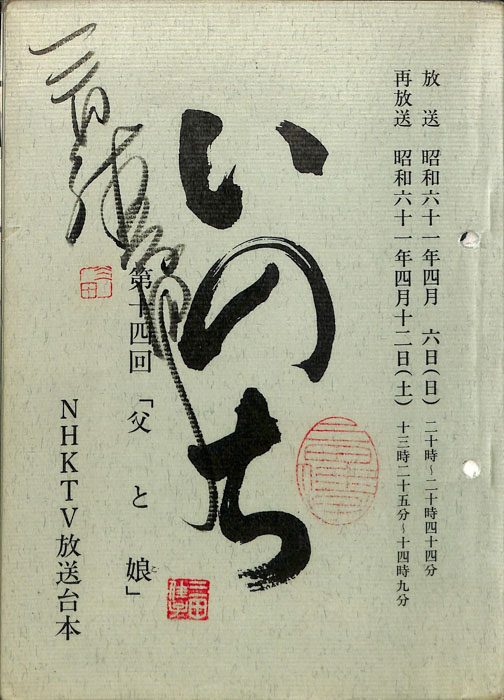 放送 昭和六十一年四月 六日(日) 二十時~二十時四十四分
再放送 昭和六十一年四月十二日(土) 十三時二十五分~十四時九分
いのち
第十四回「父と娘」
NHKTV放送台本
三田